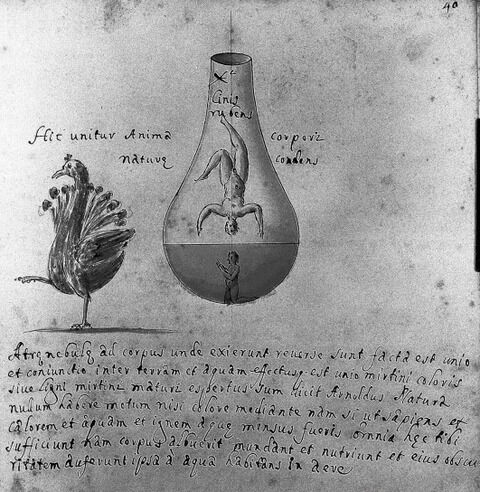 40
Cinis
rubens
Hic unitur Anima corpori
naturę condens
Atrę nebulę ad corpus unde exierunt reverse sunt facta est unio
et coniunctio inter terram et aquam effectusq est unio mirtini coloris
sive ligni mirtini maturi expertus sum dicit Arnoldus Natura
nullum habere motum nisi calore mediante nam si ut sapiens et
calorem et aquam et ignem mensus fueris omnia hęc tibi
sufficiunt nam corpus mundant et nutriunt et eius obscu
ritatem auferunt ipsa à aqua habitans in aere